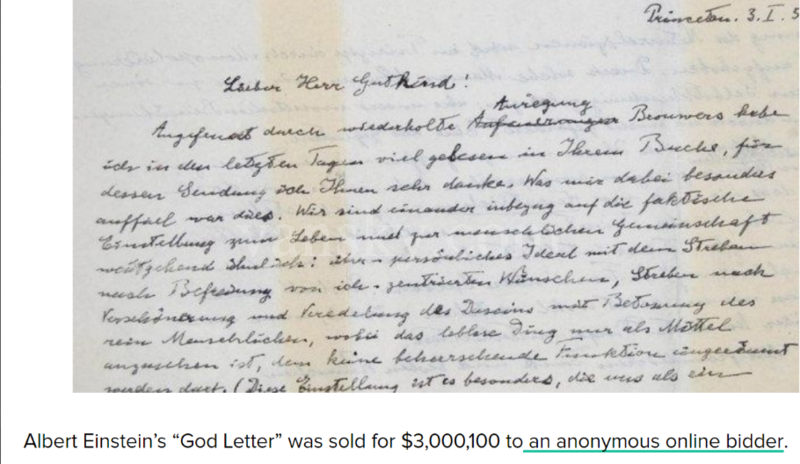 Princeton. 3. I. 5
Lieber Herr Gutkind!
Anregung
Angefeuert durch wiederholte Brouwers habe
ich in den letzten Tagen viel gelesen in Ihrem Buche, für
dessen Sendung ich Ihnen sehr danke. Was mir dabei besonders
auffiel war dies. Wir sind einander inbezug auf die faktische
Einstellung zum Leben und zur menschlichen Gemeinschaft
weitgehend ähnlich: persönliches Ideal mit dem Streben
nach Befreiung von ich-zentrierten Wünschen, Streben nach
Verschönerung und Veredelung des Daseins mit Betonung des
rein Menschlichen, wobei das leblose Ding nur als Mittel
anzusehen ist, dem keine beherrschende Funktion eingeräumt
werden darf. (Diese Einstellung ist es besonders, die uns als ein
Albert Einstein’s “God Letter” was sold for $3,000,100 to an anonymous online bidder.